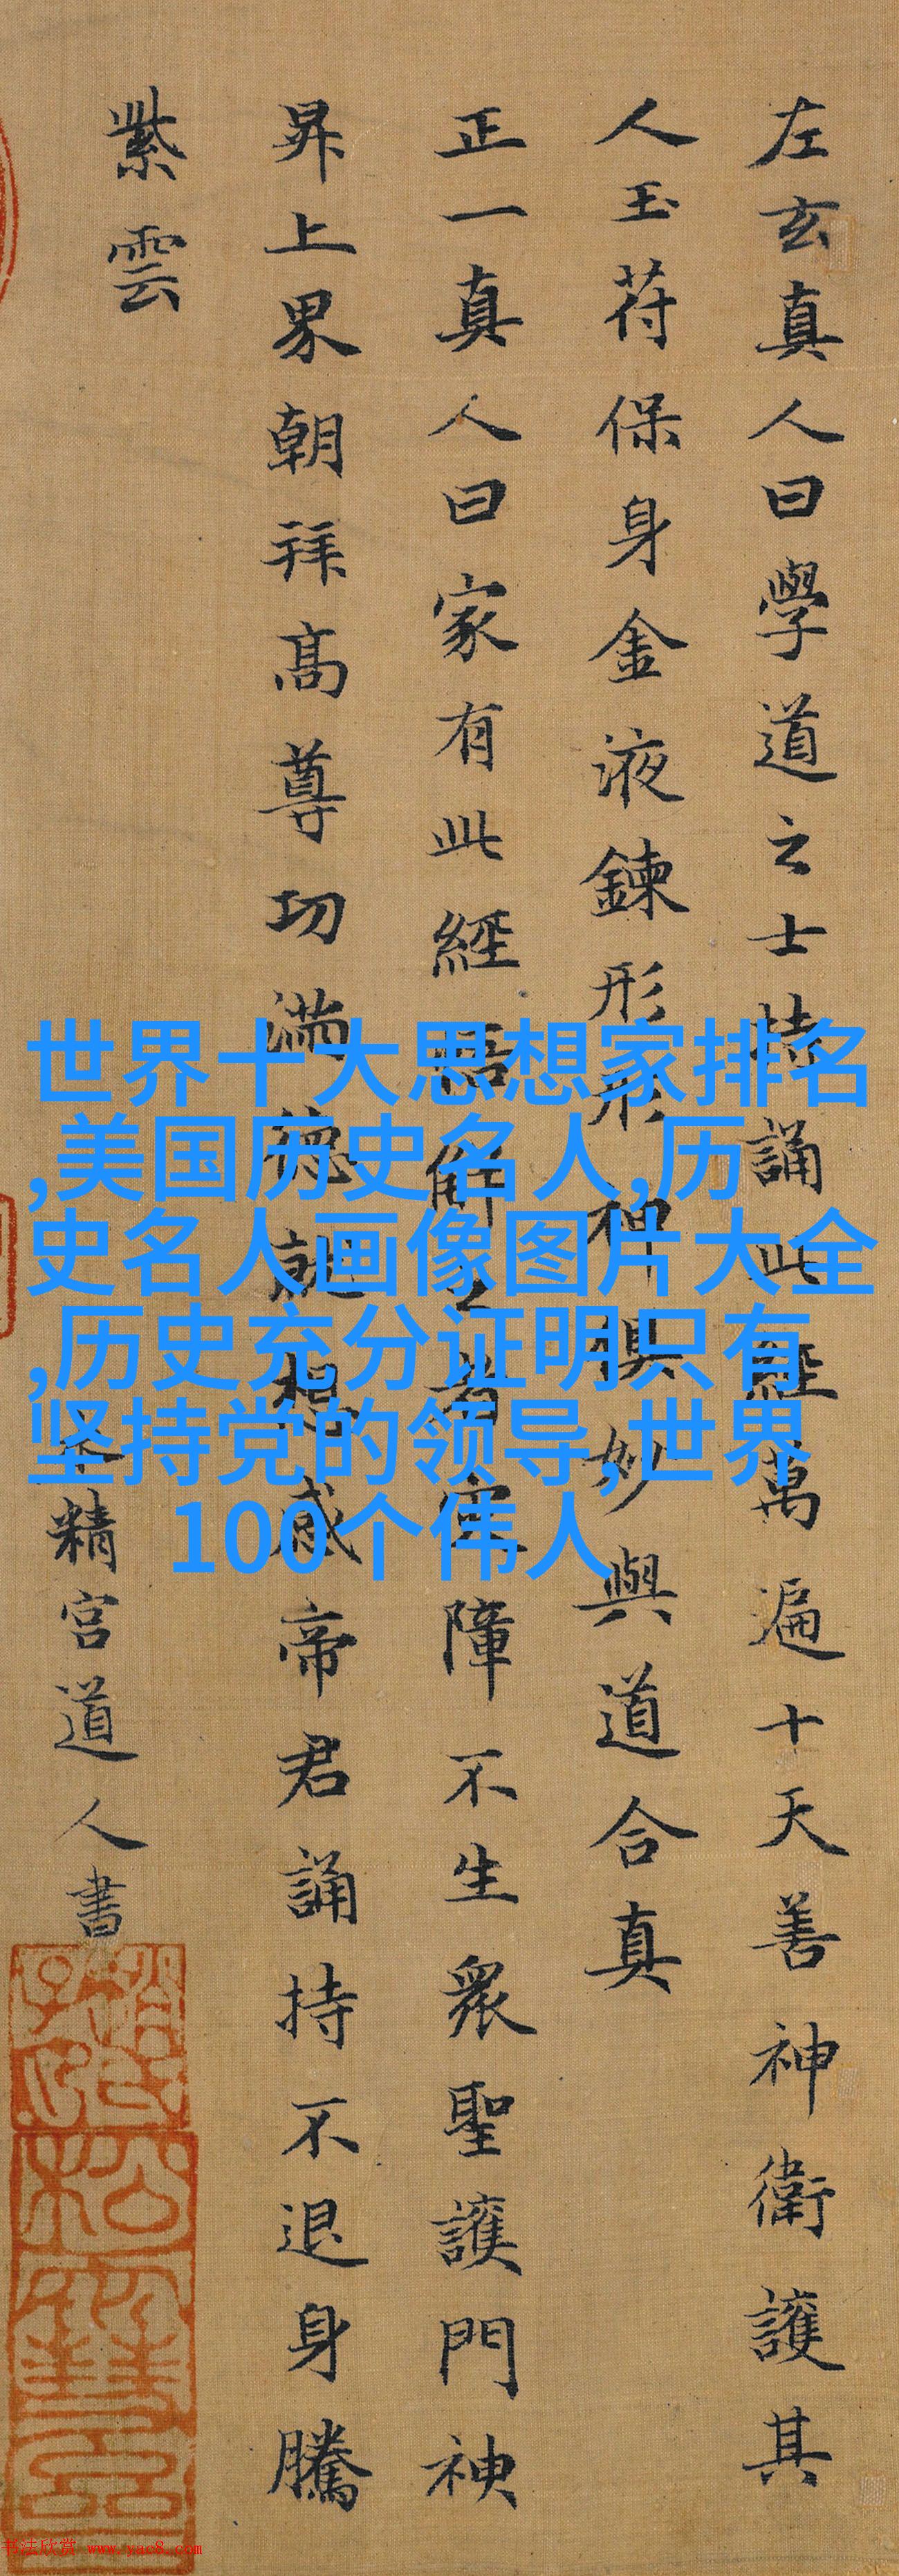 左玄真人曰學道之士持誦此經萬遍十天善神衛護其
人玉苻保身金液鍊形形神俱妙與道合真
正一真人曰家有此經悟解之者灾障不生衆聖護門神
昇上界朝拜高尊功滿德就想感帝君誦持不退身騰
紫雲
水精宮道人書
世界十大思想家排名
,美国历史名人,历
史名人画像图片大全
,历史充分证明只有
坚持党的领导,世界
100个伟人
书法欣赏 www.yac8.com